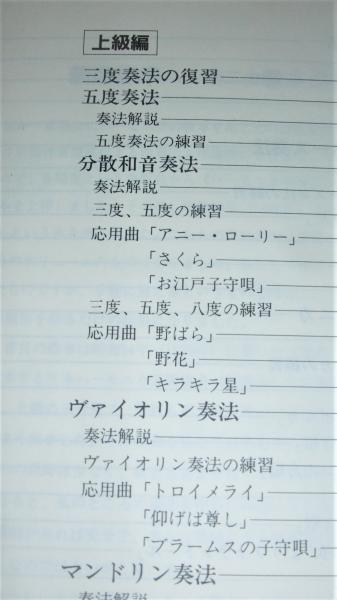 上級編
三度奏法の復習
五度奏法
奏法解説
五度奏法の練習
分散和音奏法
奏法解説
三度、五度の練習
応用曲「アニー・ローリー」
「さくら」
「お江戸子守唄」
三度、五度、八度の練習
応用曲「野ばら」
「野花」
「キラキラ星」
ヴァイオリン奏法
奏法解説
ヴァイオリン奏法の練習
応用曲「トロイメライ」
「仰げば尊し」
「ブラームスの子守唄」
マンドリン奏法
奏法解説